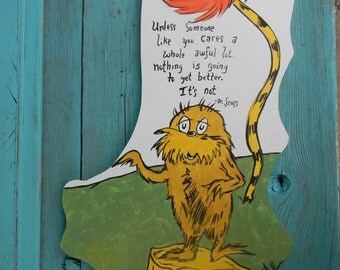 Unless someone
like you cares a
whole awful lot.
nothing is going
to get better.
It's not
-Dr. Seuss